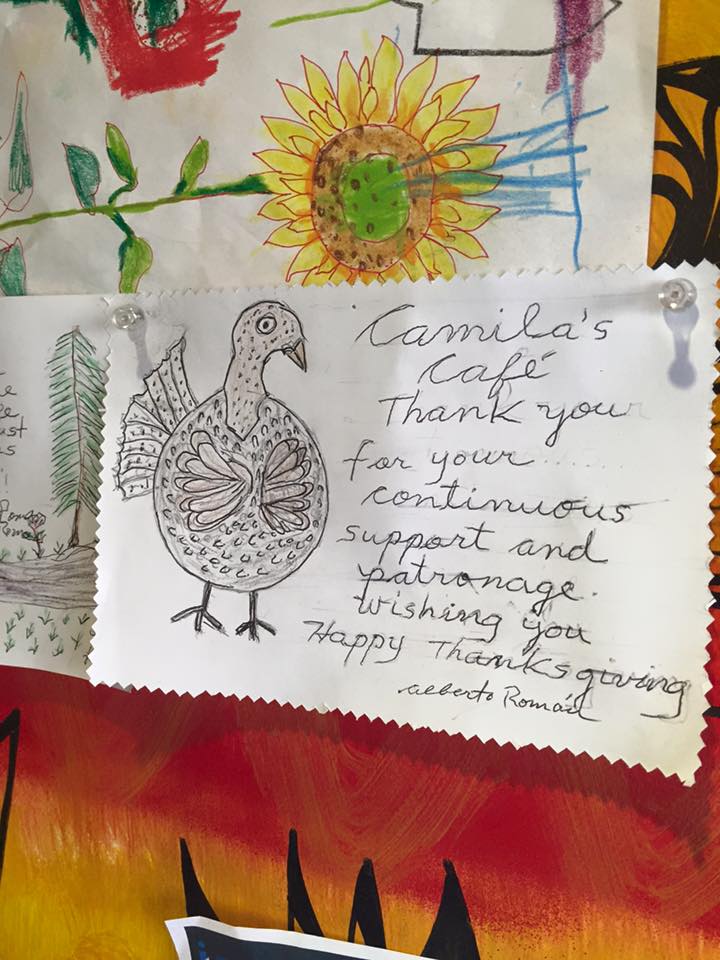 Camila's
Café
Thank you
for your
continuous
support and
patronage.
Wishing you
Happy Thanksgiving
Alberto Román